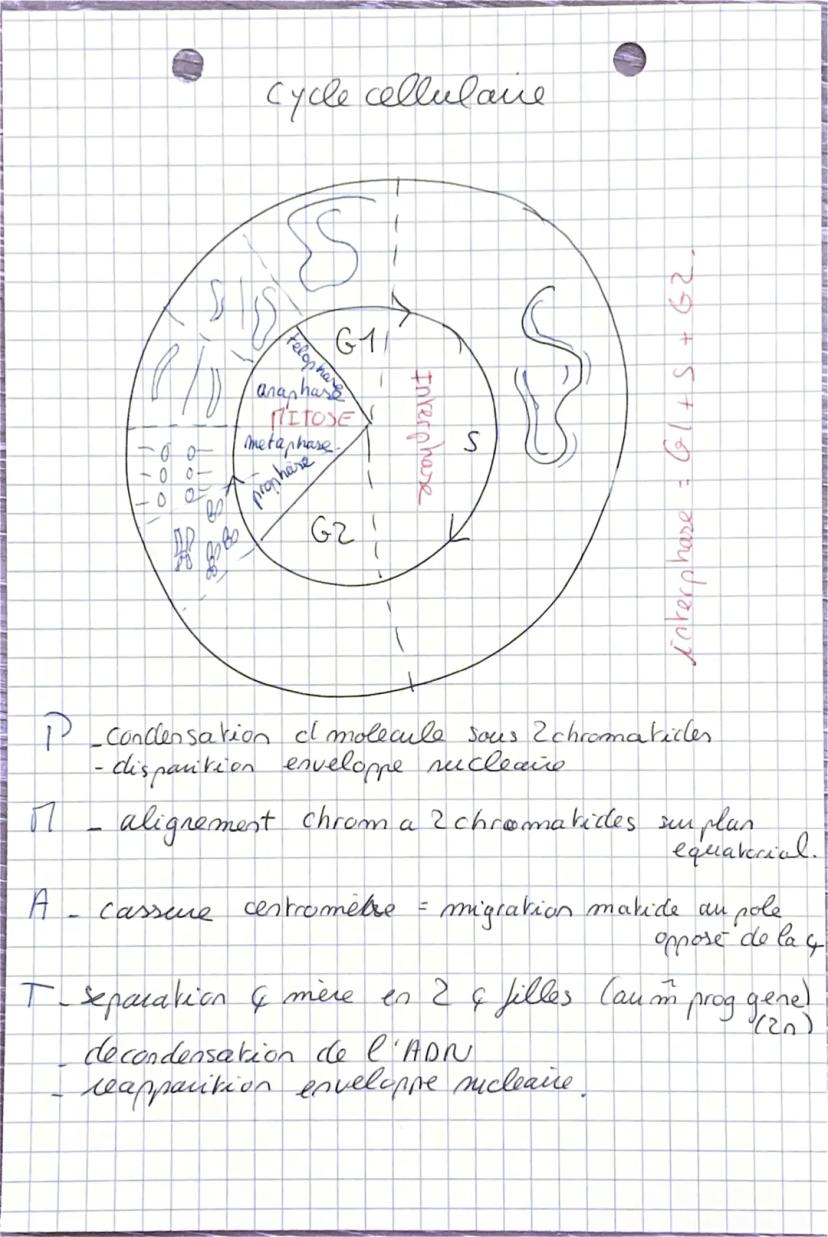 cycle cellulaire
G1
télophase
anaphase
MITOSE
metaphase
prophase
Interphase
S
G2
interphase = G1 + S + G2.
P - condensation d molecule sous 2 chromatides
- disparition enveloppe nucleaire
M - alignement chrom a 2 chromatides sur plan
equatorial.
A - cassure centromère = migration matide au pole
opposé de la ç
T - separation ç mère en 2 ç filles (au m̂ prog gene)
(2n)
- decondensation de l'ADN
- reapparition enveloppe nucleaire.